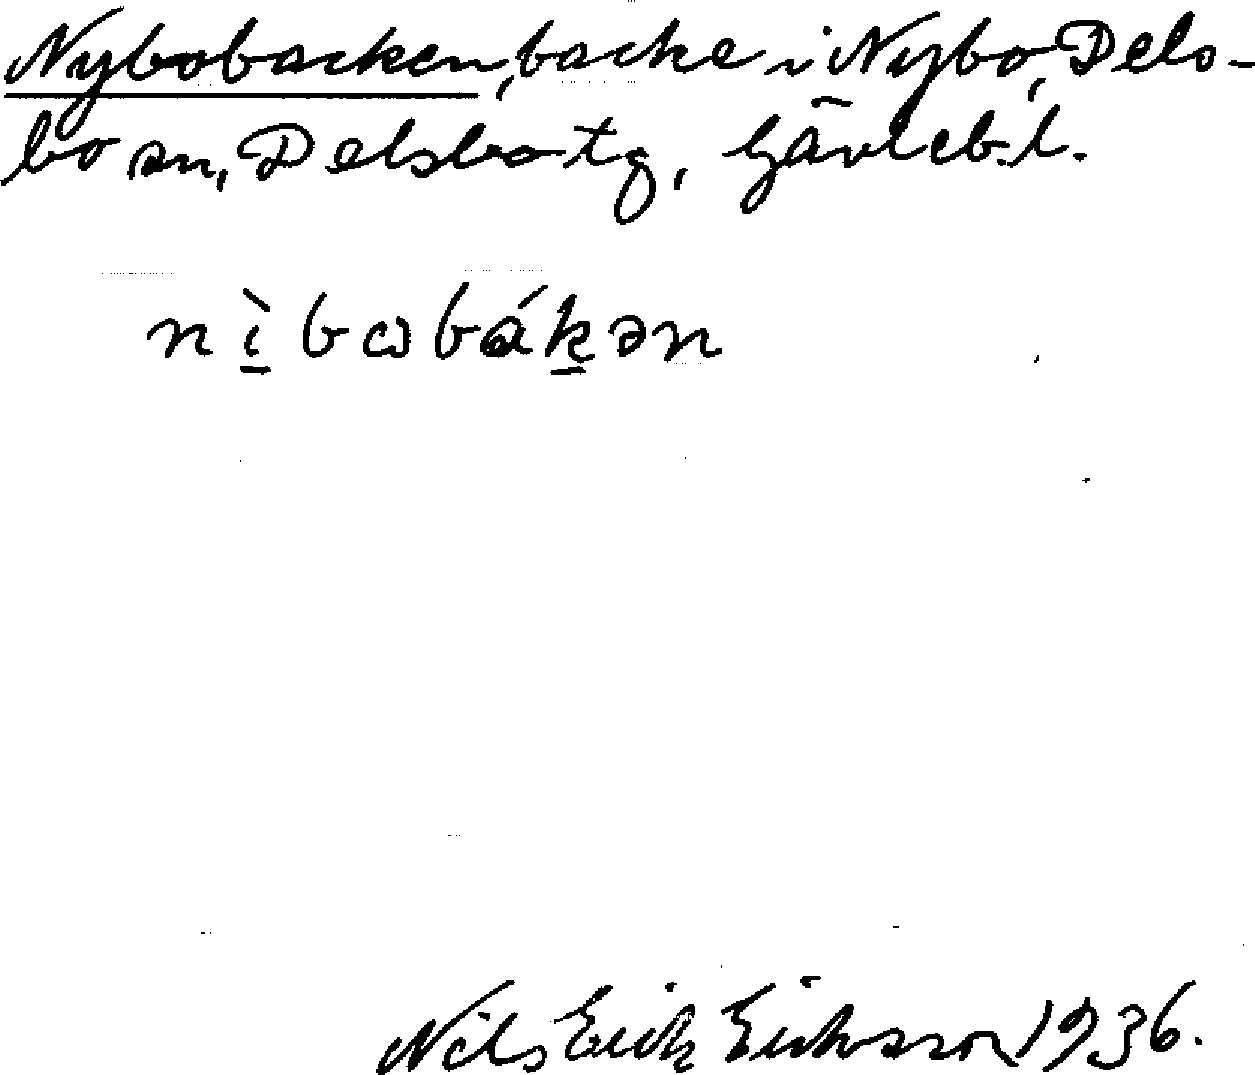 Nybobacken, backe i Nybo, Dels-
bo sn, Delsbo tg, Gävleb. l.
nì̱bωbáḵən
Nils Erik Eriksson 1936.